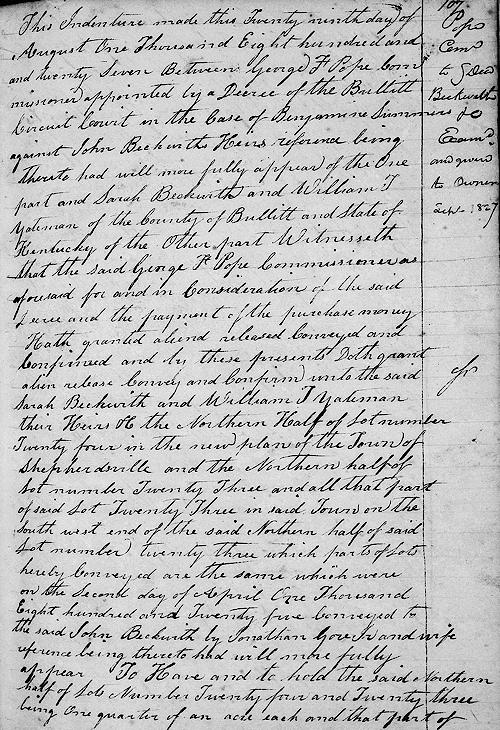 This Indenture made this Twenty ninth day of
August One Thousand Eight hundred and
and twenty Seven Between George F Pope Com
missioner appointed by a Decree of the Bullitt
Circuit Court in the Case of Benjamine Summers
against John Beckwiths Heirs reference being
thereto had will more fully appear of the One
part and Sarah Beckwith and William T
Yateman of the County of Bullitt and State of
Kentucky of the Other part Witnesseth
that the said George F Pope Commissioner as
aforesaid for and in Consideration of the said
Decree and the payment of the purchase money
Hath granted aliend released Conveyed and
Confirmed and by these presents Doth grant
alien release Convey and Confirm unto the said
Sarah Beckwith and William T Yateman
their Heirs the Northern Half of Lot number
Twenty four in the new plan of the Town of
Shepherdsville and the Northern half of
Lot number Twenty Three and all that part
of said Lot Twenty Three in said Town on the
South west end of the said Northern half of said
Lot number twenty three which parts of Lots
hereby Conveyed are the same which were
on the Second day of April One Thousand
Eight hundred and Twenty five Conveyed to
the said John Beckwith by Jonathan Gore Jr and wife
reference being thereto had will more fully
appear To Have and to hold the said Northern
half of Lots Number Twenty four and Twenty three
being One quarter of an acre each and that part of
107
Pope
Comr
to Deed
Beckwith
&c
Examd
and given
to Owner
Sept 1827